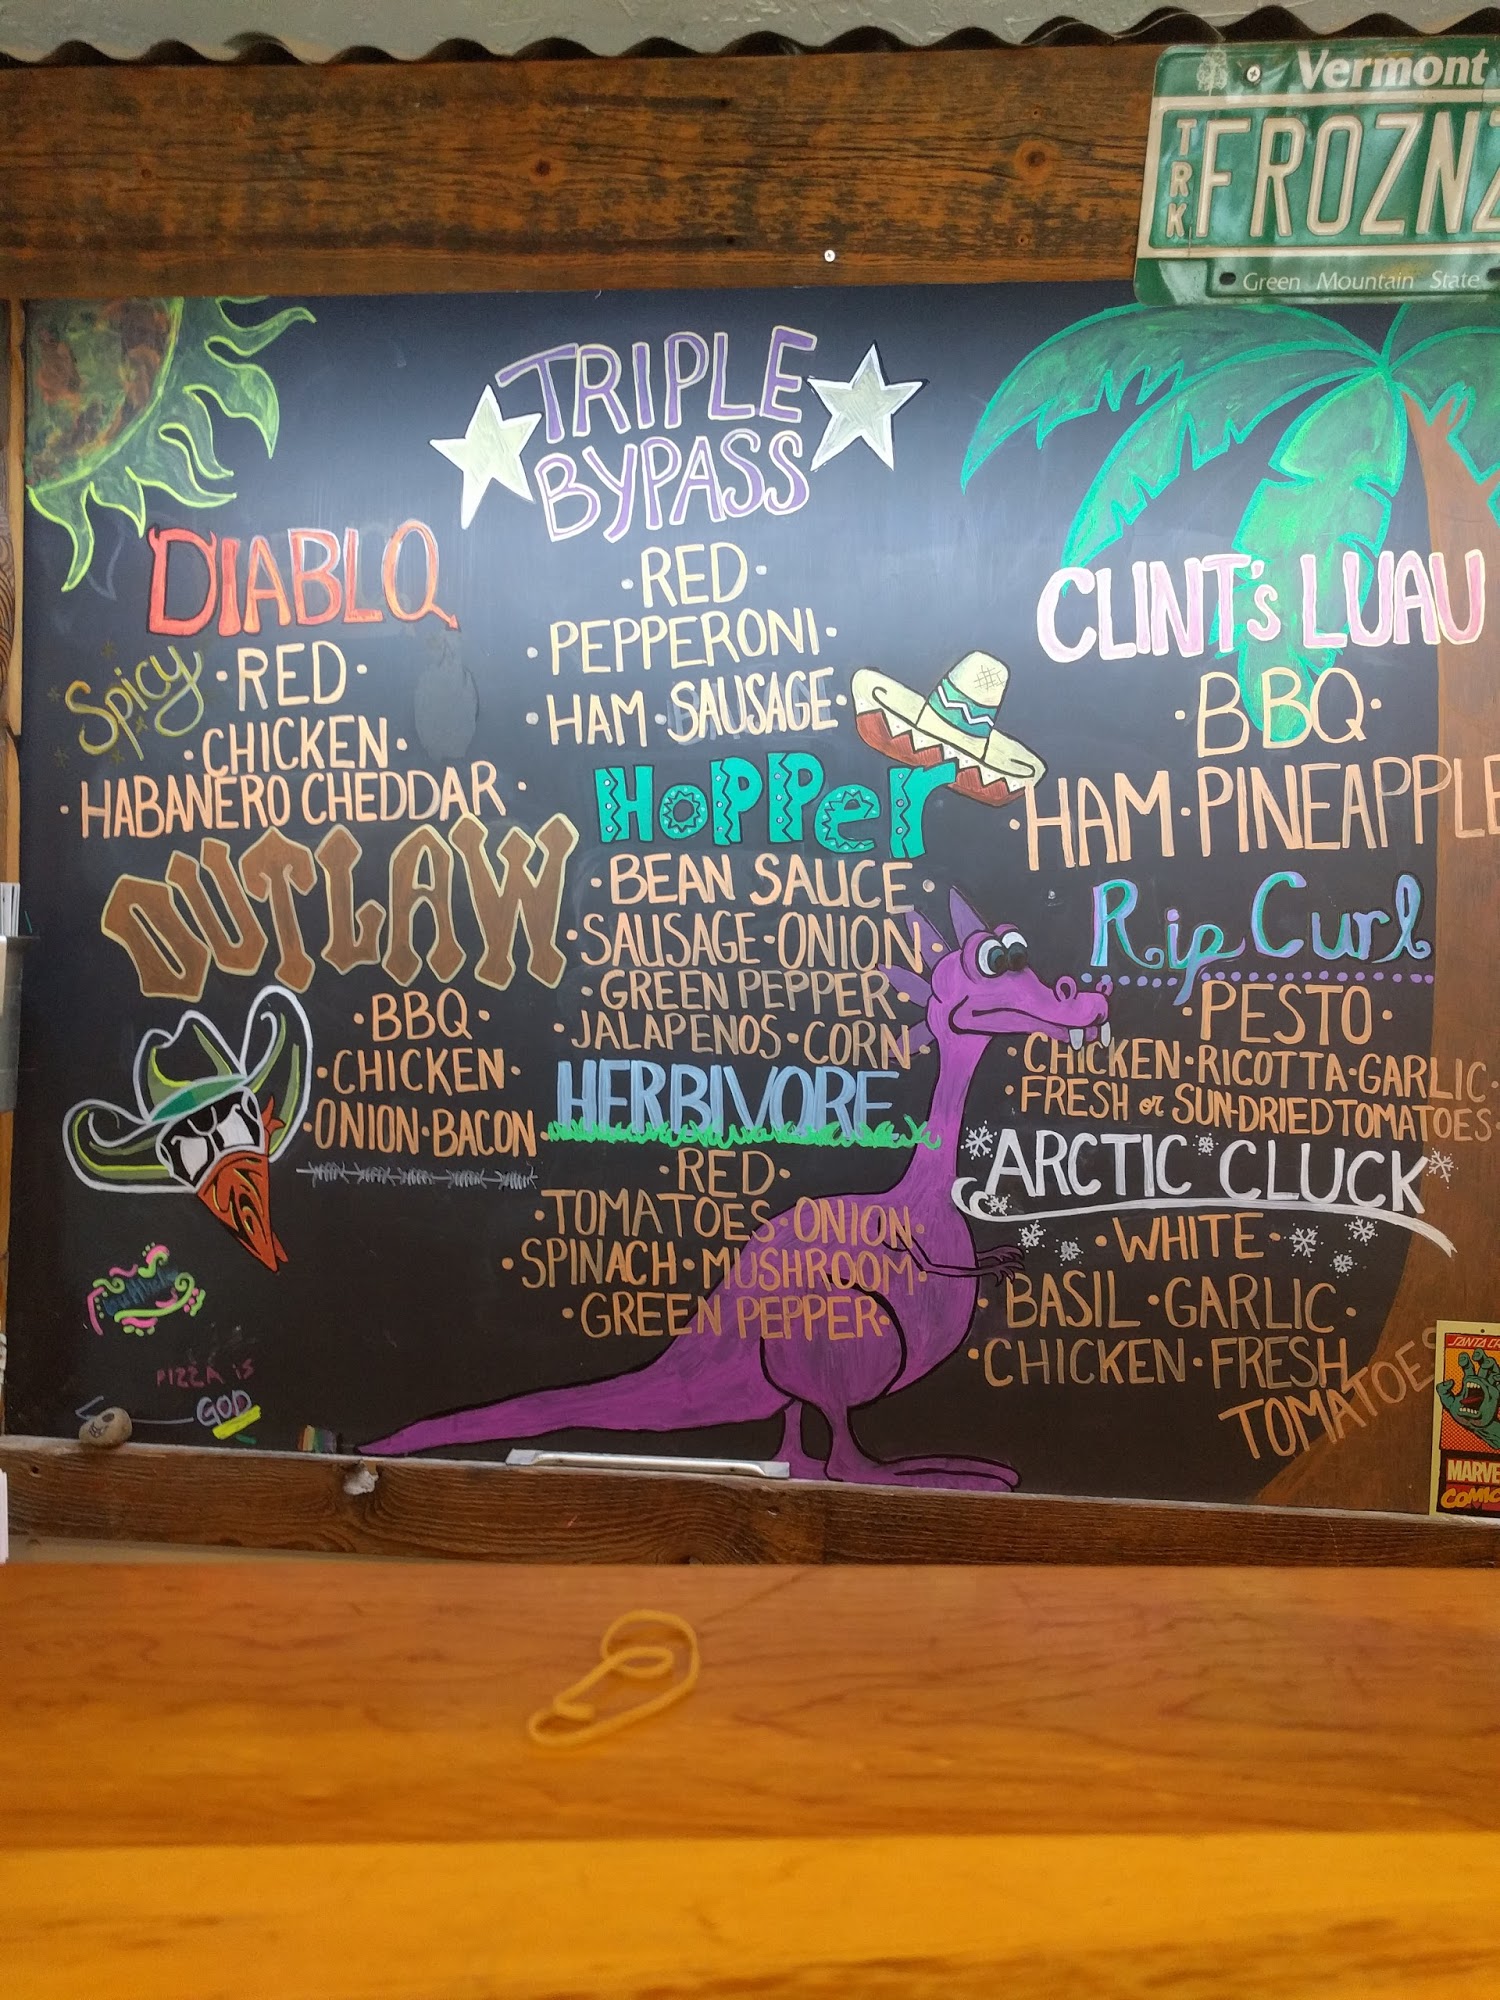 Vermont
TRK
FROZNZ
Green Mountain State
TRIPLE
BYPASS
·RED·
·PEPPERONI·
·HAM·SAUSAGE·
DIABLO
Spicy
·RED·
·CHICKEN·
·HABANERO CHEDDAR·
OUTLAW
·BBQ·
·CHICKEN·
·ONION·BACON·
HOPPer
·BEAN SAUCE·
·SAUSAGE·ONION·
·GREEN PEPPER·
·JALAPENOS·CORN·
HERBIVORE
·RED·
·TOMATOES·ONION·
·SPINACH·MUSHROOM·
·GREEN PEPPER·
CLINT's LUAU
·BBQ·
·HAM·PINEAPPLE
Rip Curl
·PESTO·
·CHICKEN·RICOTTA·GARLIC·
·FRESH or SUN-DRIED TOMATOES·
ARCTIC CLUCK
·WHITE·
·BASIL·GARLIC·
·CHICKEN·FRESH
TOMATOES
PIZZA is
GOD
SANTA CR
MARVE
COMIC